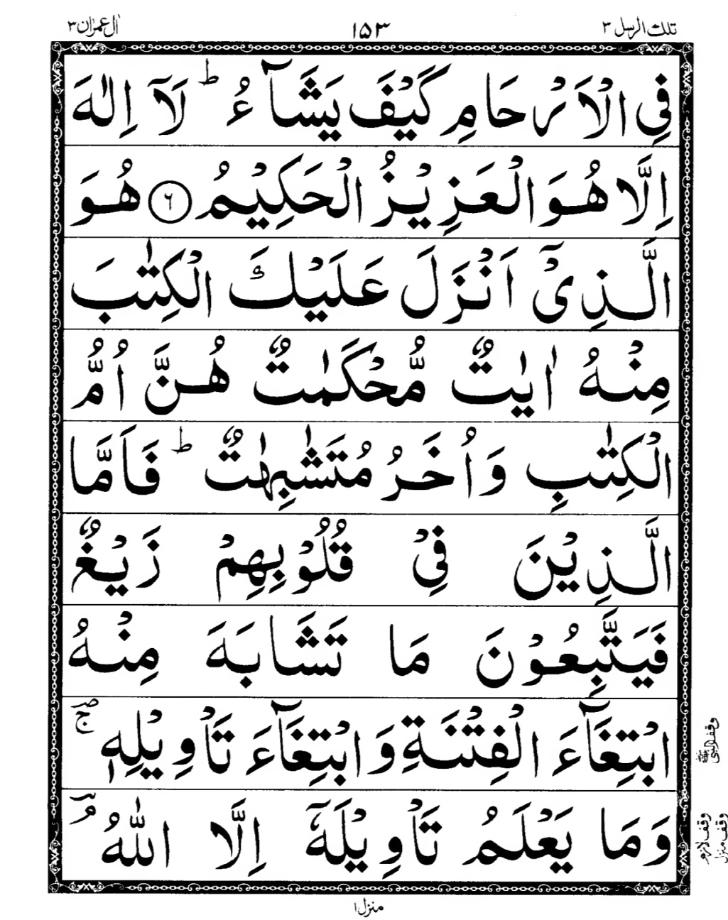 تلك الرسل ٣ ١٥٣ اٰل عمران ٣
فِی الْاَرْحَامِ كَیْفَ یَشَآءُ ؕ لَاۤ اِلٰهَ
اِلَّا هُوَ الْعَزِیْزُ الْحَكِیْمُ ۶ هُوَ
الَّذِیْۤ اَنْزَلَ عَلَیْكَ الْكِتٰبَ
مِنْهُ اٰیٰتٌ مُّحْكَمٰتٌ هُنَّ اُمُّ
الْكِتٰبِ وَ اُخَرُ مُتَشٰبِهٰتٌ ؕ فَاَمَّا
الَّذِیْنَ فِیْ قُلُوْبِهِمْ زَیْغٌ
فَیَتَّبِعُوْنَ مَا تَشَابَهَ مِنْهُ
ابْتِغَآءَ الْفِتْنَةِ وَ ابْتِغَآءَ تَاْوِیْلِهٖ ۚ
وَ مَا یَعْلَمُ تَاْوِیْلَهٗۤ اِلَّا اللّٰهُ ۘ
وقف النبی ﷺ
وقف لازم
وقف منزل
منزل ۱